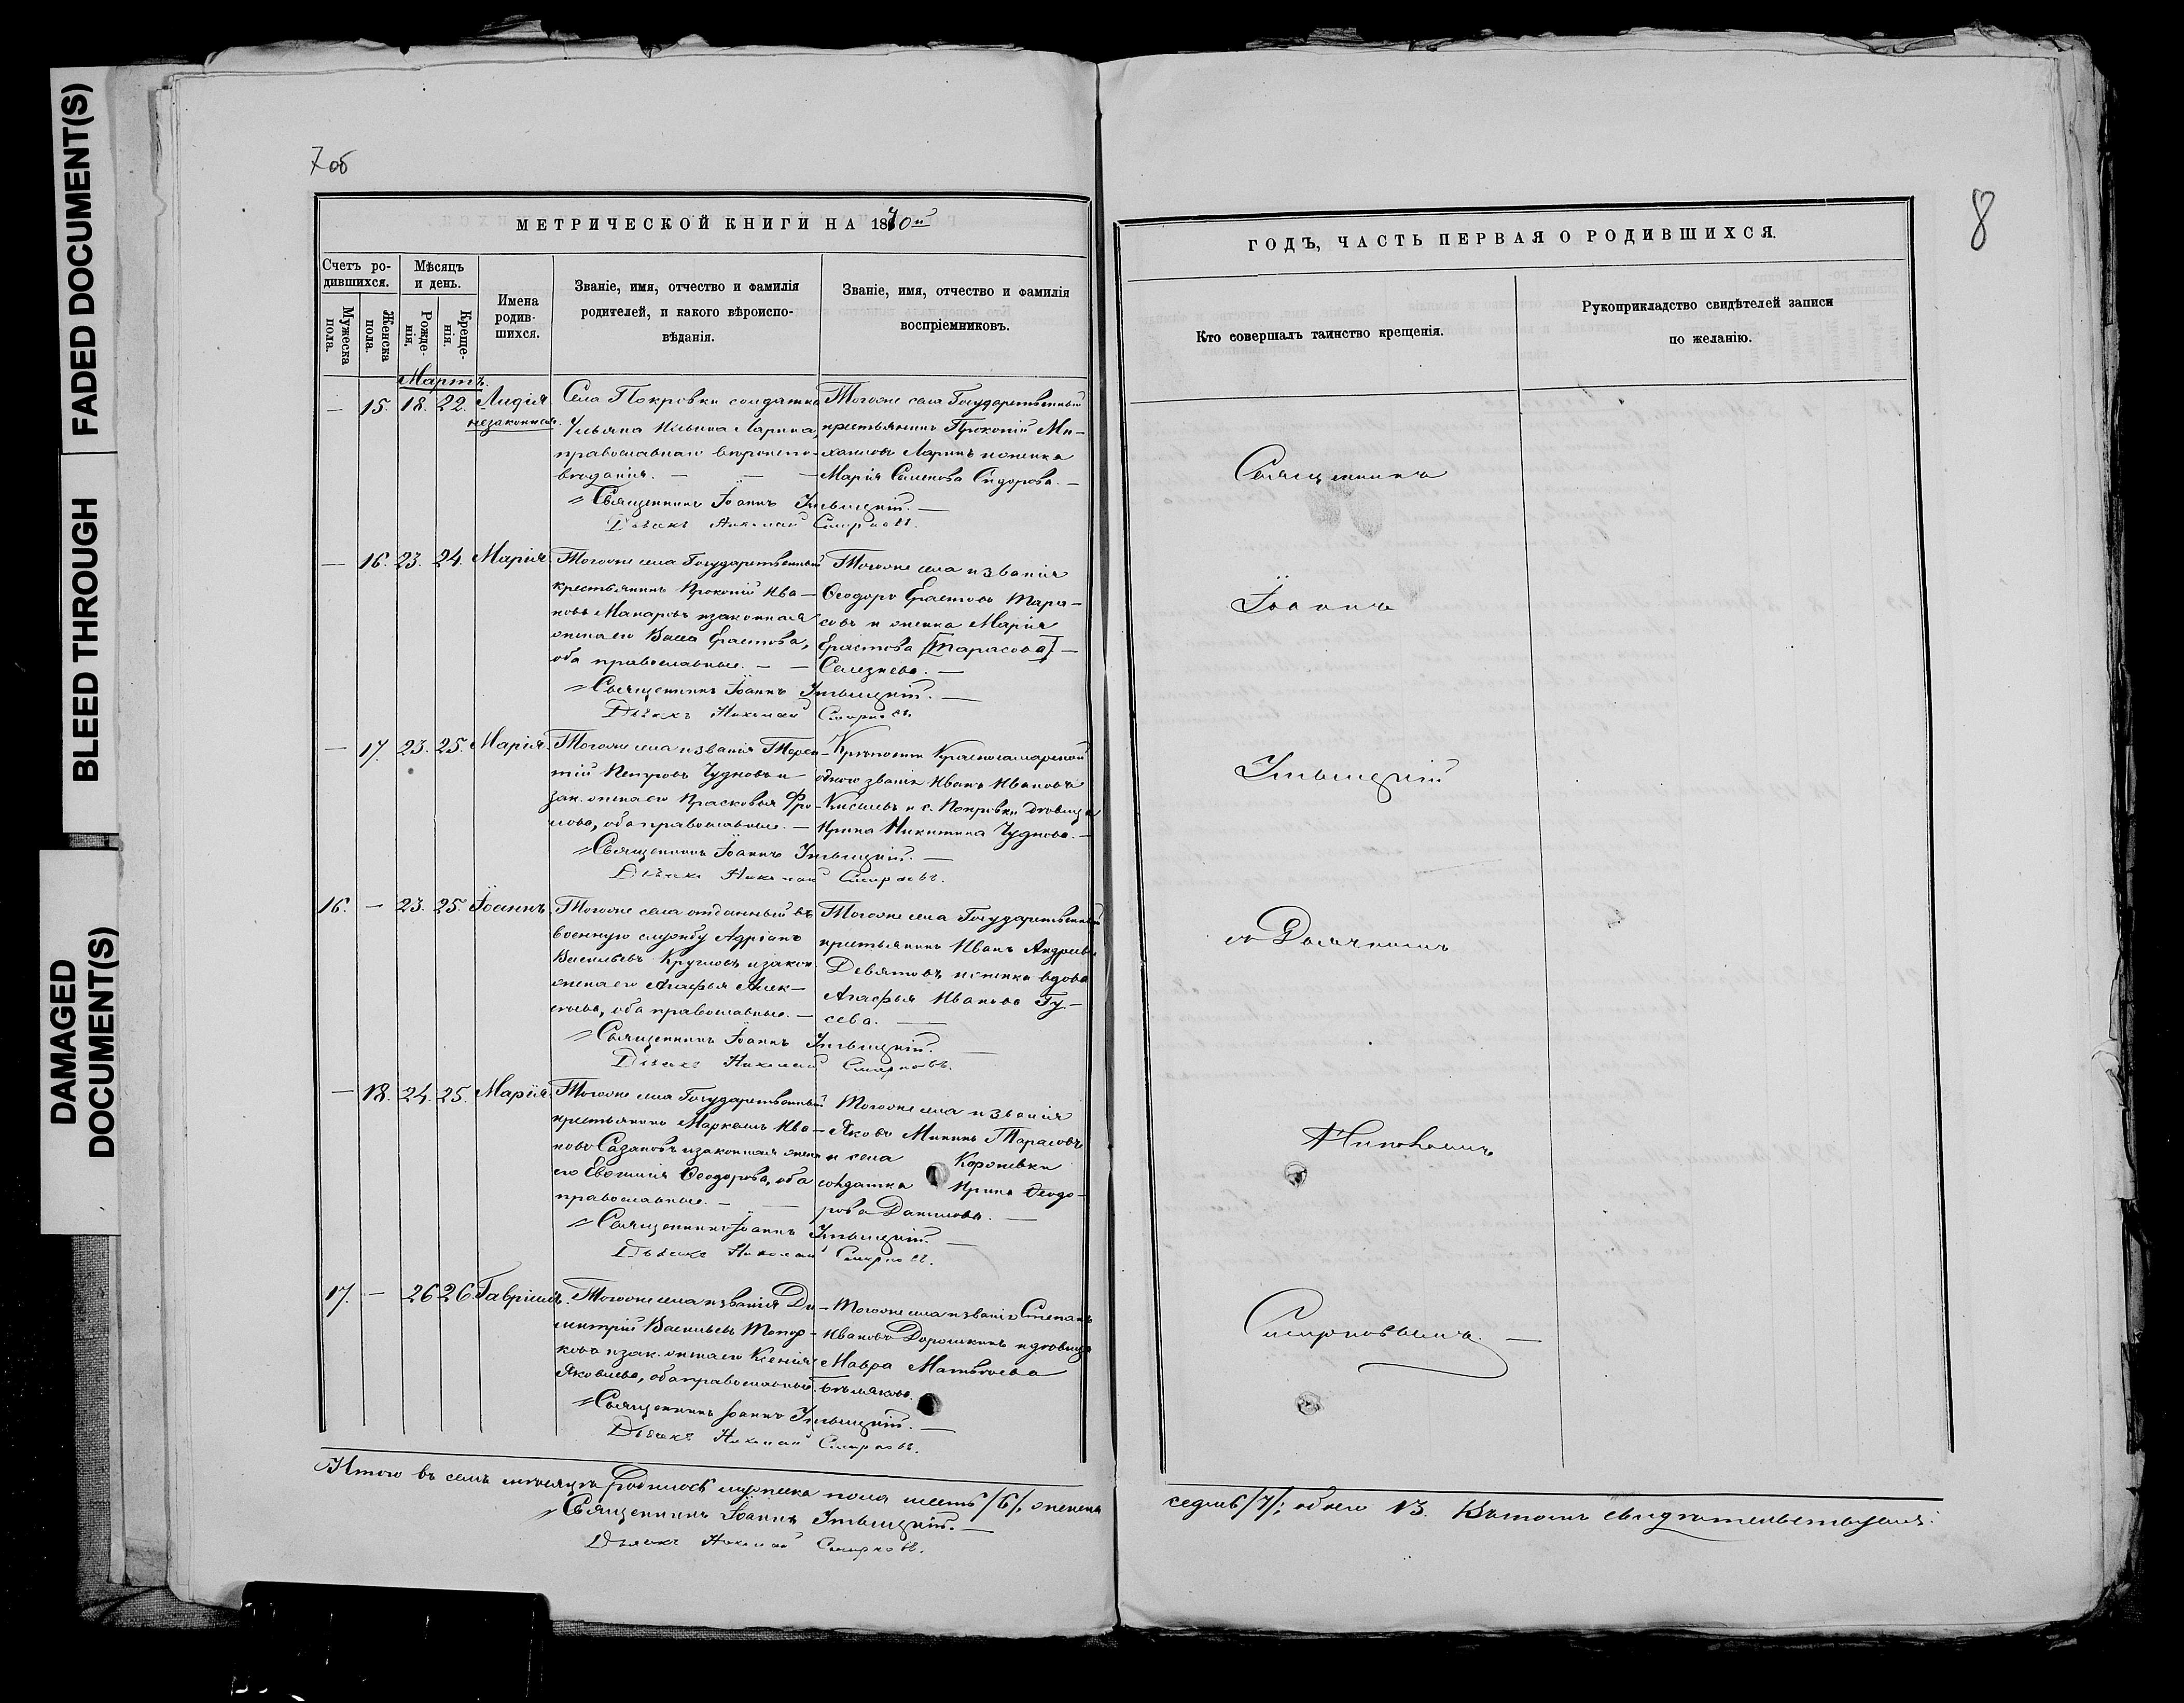 FADED DOCUMENT(S)
BLEED THROUGH
DAMAGED
DOCUMENT(S)
7 об
МЕТРИЧЕСКОЙ КНИГИ НА 1870й
Счетъ ро-
дившихся.
Мужеска
пола.
Женска
пола.
Мѣсяцъ
и день.
Рожде-
нія.
Креще-
нія.
Имена
родив-
шихся.
Званіе, имя, отчество и фамилія
родителей, и какого вѣроиспо-
вѣданія.
Званіе, имя, отчество и фамилія
воспріемниковъ.
Мартъ.
— 15. 18. 22. Лидія
незаконная.
Села Покровки солдатка
Ульяна Ильина Ларина,
православнаго вѣроиспо-
вѣданія. — — —
Тогоже села Государственный
крестьянинъ Прокопій Ми-
хаиловъ Ларинъ и женка
Марія Семенова Сидорова. —
Священникъ Іоаннъ
Дьячекъ Николай Смирновъ.
— 16. 23. 24. Марія
Тогоже села Государственный
крестьянинъ Прокопій Ива-
новъ Макаровъ и законная
жена его Васса Ерастова,
оба православные. — —
Тогоже села и званія
Ѳеодоръ Ерастовъ Тара-
совъ и женка Марія
Ерастова [Тарасова] —
Селезнева. —
Священникъ Іоаннъ
Дьячекъ Николай Смирновъ.
— 17. 23. 25. Марія.
Тогоже села и званія
Петровъ Чудновъ и
зак. жена его Прасковья Фро-
лова, оба православные. —
Крѣпости Красносамарской
одного званія Иванъ Ивановъ
Киселевъ и с. Покровки дѣвица
Ирина Никитина Чуднова. —
Священникъ Іоаннъ
Дьячекъ Николай Смирновъ.
16. — 23. 25. Іоаннъ.
Тогоже села отданный въ
военную службу Адріанъ
Васильевъ Кругловъ и закон.
жена его Агафья Алек-
сѣева, оба православные. —
Тогоже села Государственный
крестьянинъ Иванъ Андреевъ
Девятовъ и женка вдова
Агафья Иванова Гу-
сева. —
Священникъ Іоаннъ
Дьячекъ Николай Смирновъ.
— 18. 24. 25. Марія.
Тогоже села Государственный
крестьянинъ Маркелъ Ива-
новъ Сазановъ и законная жена
его Евгенія Ѳеодорова, оба
православные. — —
Тогоже села и званія
Яковъ Мининъ Тарасовъ
и села Корневки
солдатка Ирина Ѳеодо-
рова Данилова. —
Священникъ Іоаннъ
Дьячекъ Николай Смирновъ.
17. — 26 26 Гавріилъ.
Тогоже села и званія Ди-
митрій Васильевъ Топор-
ковъ и зак. жена его Ксенія
Яковлева, оба православные.
Тогоже села и званія Степанъ
Ивановъ Дорошкинъ и дѣвица
Мавра Матвѣева
Бѣлякова.
Священникъ Іоаннъ
Дьячекъ Николай Смирновъ.
Итого въ семъ мѣсяцѣ родилось мужеска пола шесть /6/, женска
Священникъ Іоаннъ
Дьячекъ Николай Смирновъ.
8
ГОДЪ, ЧАСТЬ ПЕРВАЯ О РОДИВШИХСЯ.
Кто совершалъ таинство крещенія.
Рукоприкладство свидѣтелей записи
по желанію.
Священникъ
Іоаннъ
съ Дьячкомъ
Николаемъ
Смирновымъ. —
седмь /7/; обоего 13. Въ томъ свидѣтельствуемъ: